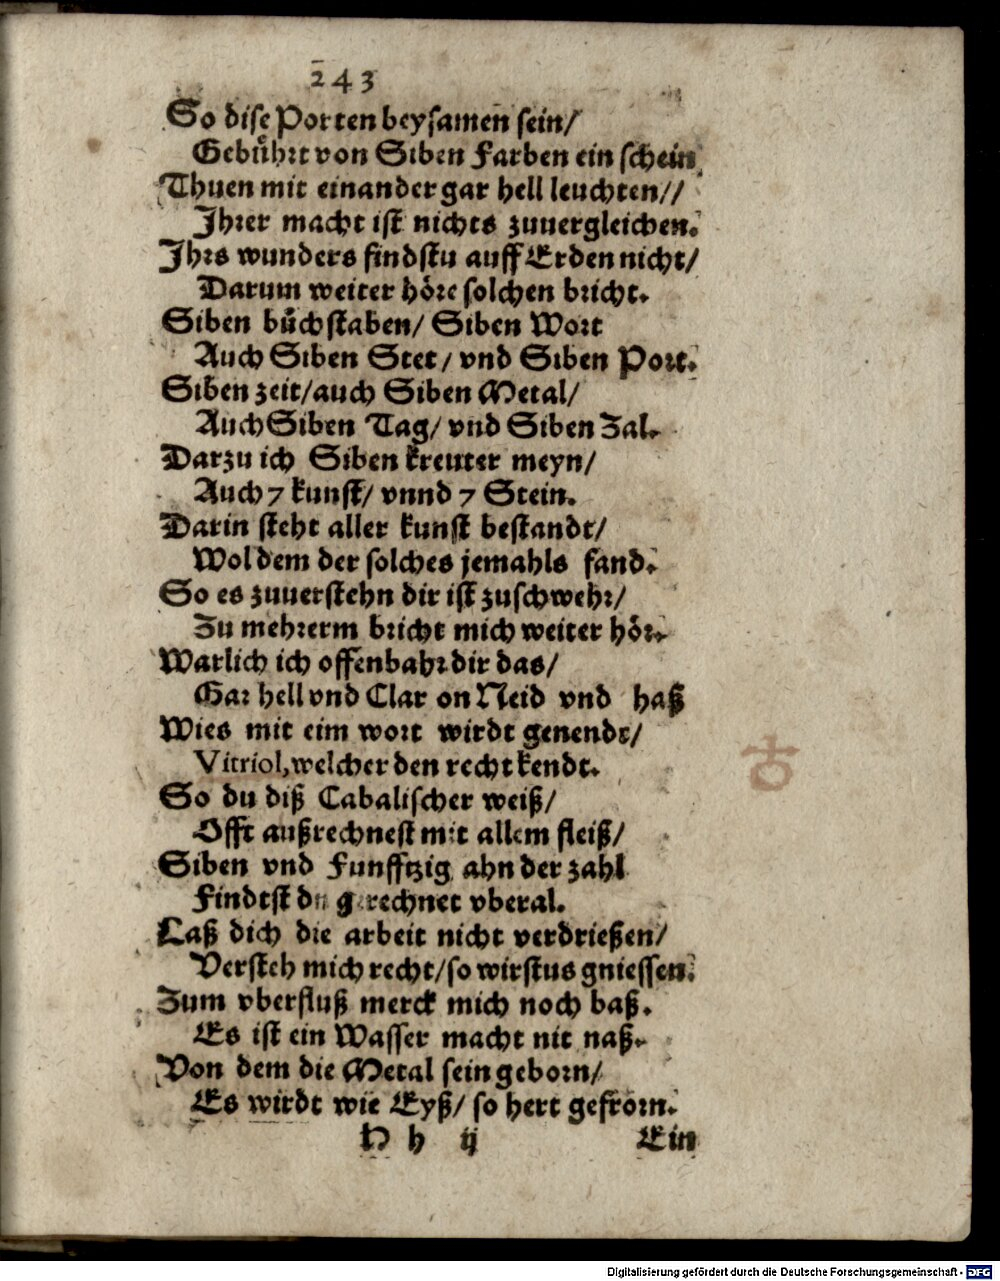 243
So dise Porten beysamen sein/
Gebührt von Siben Farben ein schein
Thuen mit einander gar hell leuchten//
Jhrer macht ist nichts zuuergleichen.
Jhrs wunders findstu auff Erden nicht/
Darum weiter höre solchen bricht.
Siben bůchstaben/ Siben Wort
Auch Siben Stet/ vnd Siben Port.
Siben zeit/auch Siben Metal/
Auch Siben Tag/ vnd Siben Zal.
Darzu ich Siben kreuter meyn/
Auch 7 kunst/ vnnd 7 Stein.
Darin steht aller kunst bestandt/
Wol dem der solches jemahls fand.
So es zuuerstehn dir ist zuschwehr/
Zu mehrerm bricht mich weiter hör.
Warlich ich offenbahr dir das/
Gar hell vnd Clar on Neid vnd haß
Wies mit eim wort wirdt genendt/
Vitriol, welcher den recht kendt.
So du diß Cabalischer weiß/
Offt außrechnest mit allem fleiß/
Siben vnd Funfftzig ahn der zahl
Findtst du gerechnet vberal.
Laß dich die arbeit nicht verdrießen/
Versteh mich recht/so wirstus gniessen.
Zum vberfluß merck mich noch baß.
Es ist ein Wasser macht nit naß.
Von dem die Metal sein geborn/
Es wirdt wie Eyß/ so hert gefrorn.
H h ij Ein
Digitalisierung gefördert durch die Deutsche Forschungsgemeinschaft - DFG